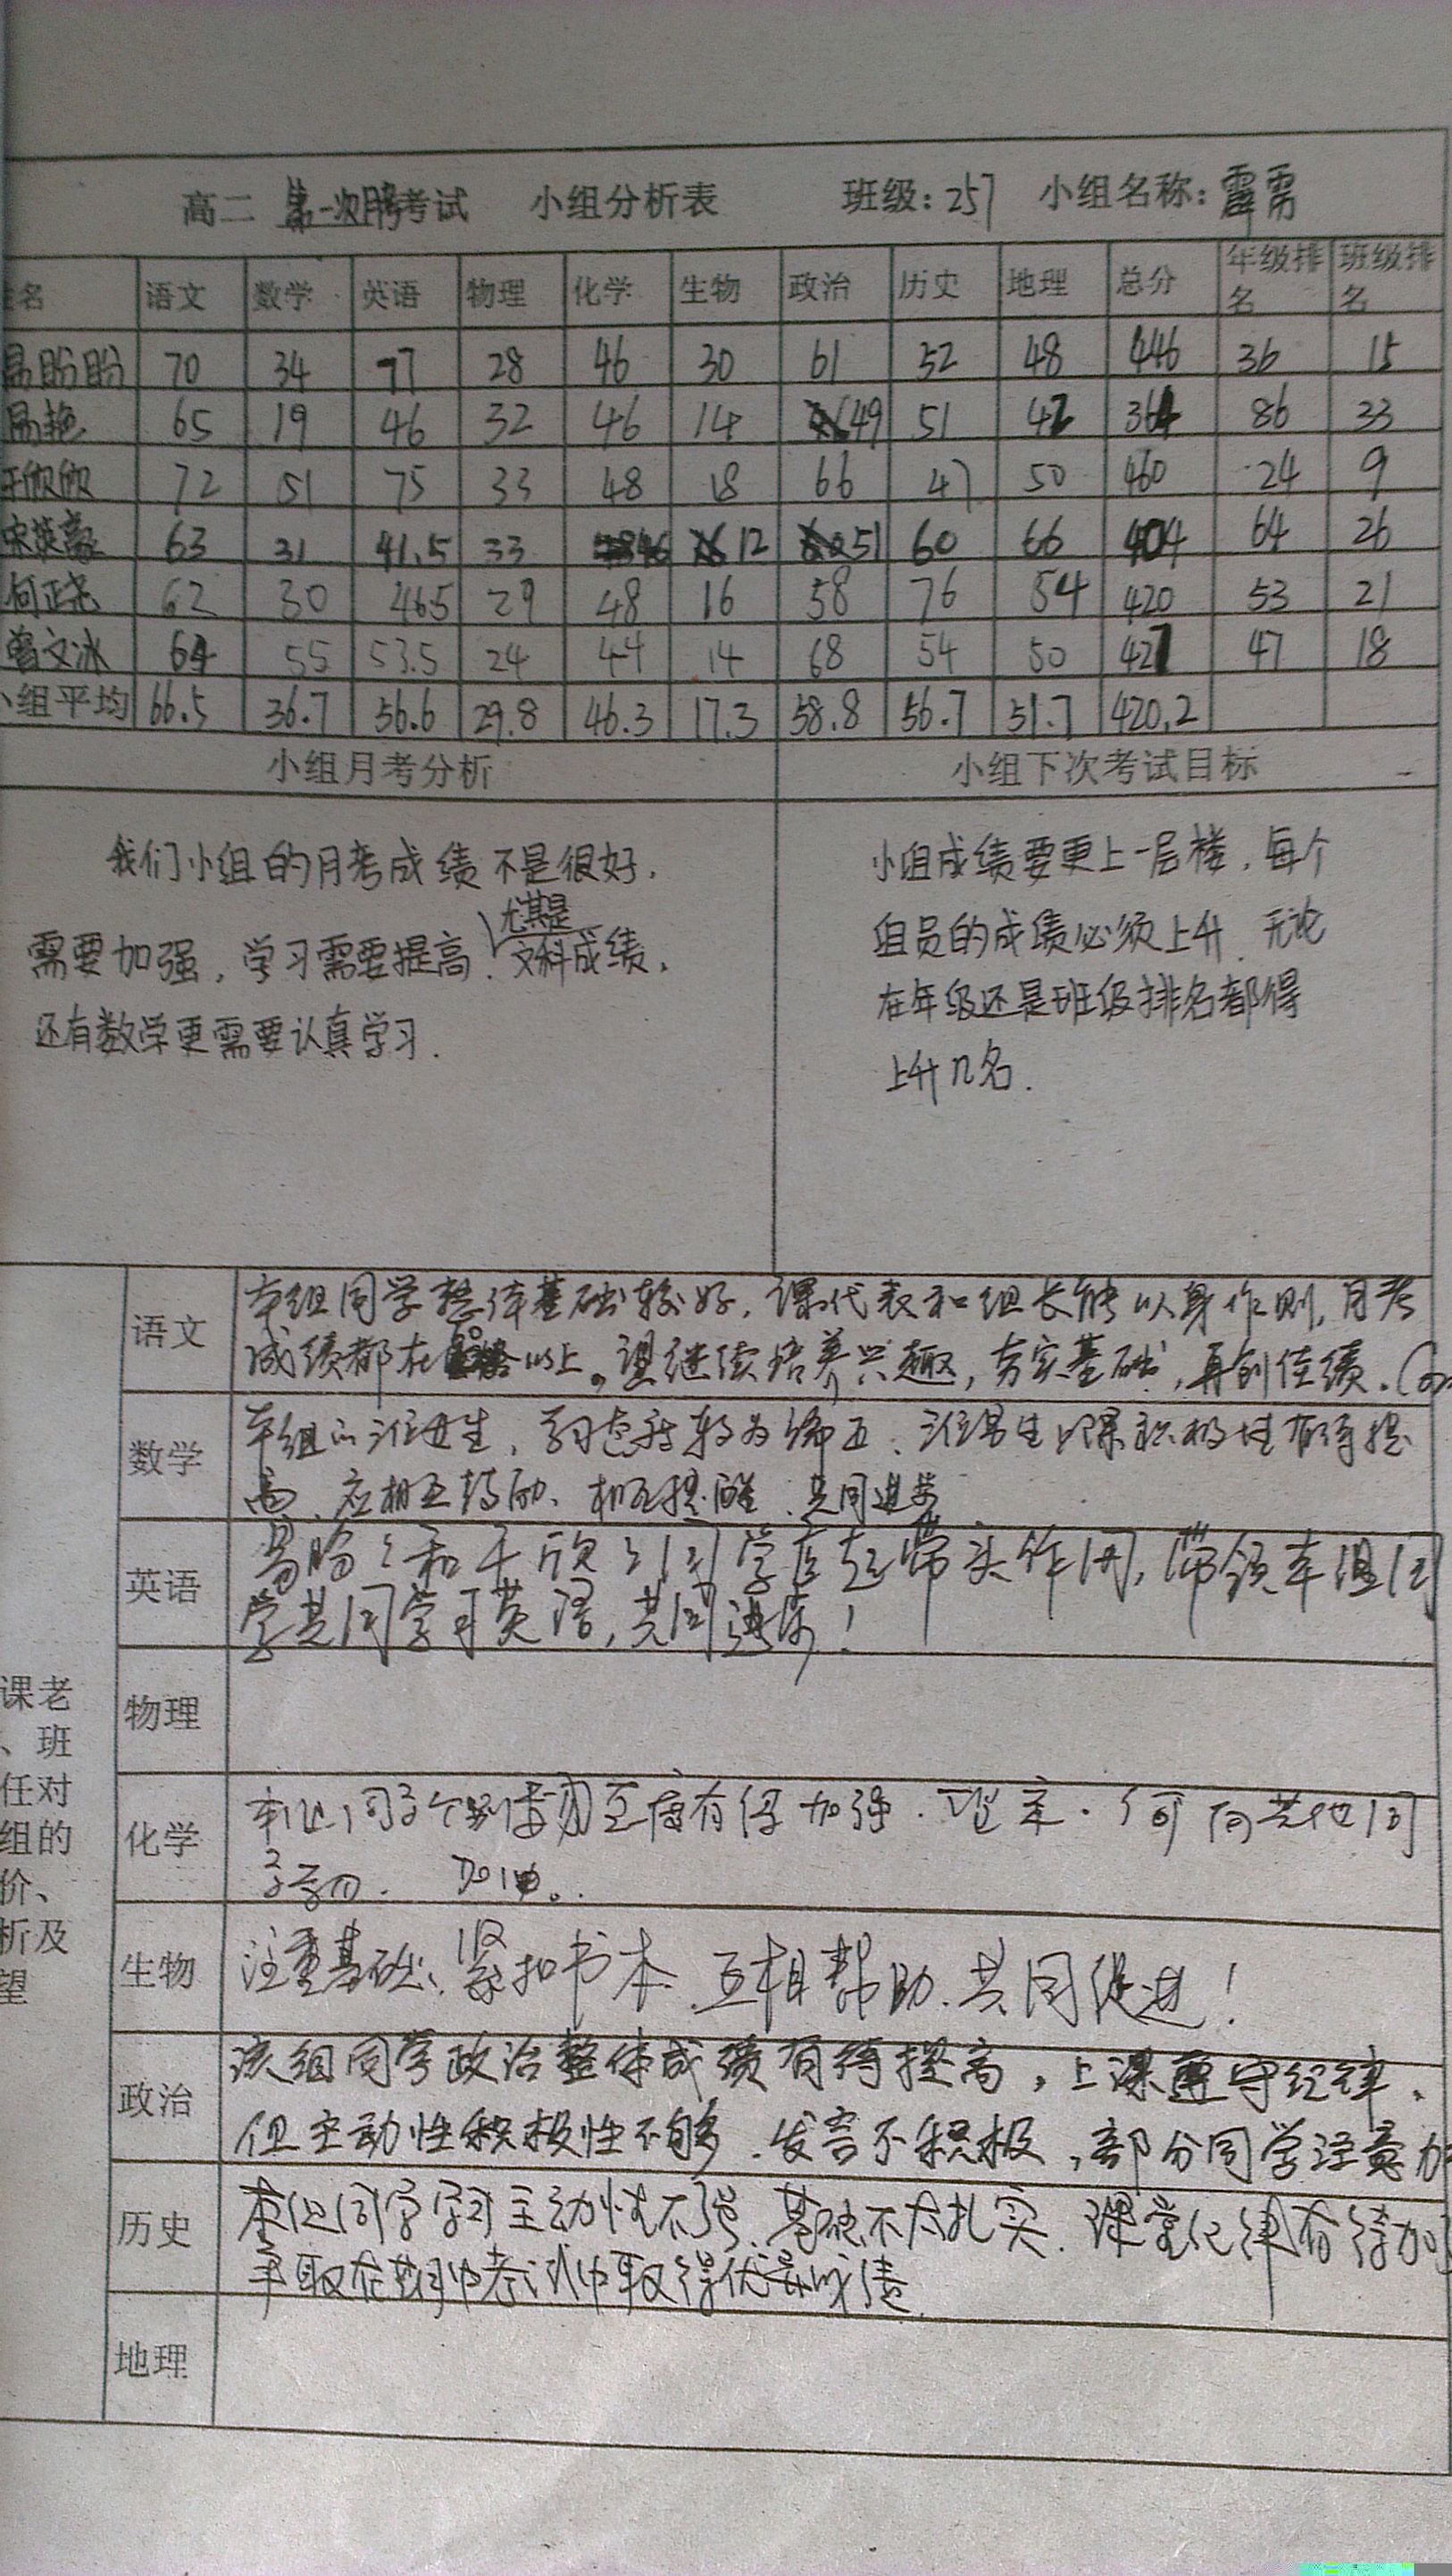 高二 第一次月考考试 小组分析表 班级：257 小组名称：霹雳
名 语文 数学 英语 物理 化学 生物 政治 历史 地理 总分 年级排名 班级排名
易盼盼 70 34 77 28 46 30 61 52 48 446 36 15
易艳 65 19 46 32 46 14 49 51 42 364 86 33
欣欣 72 51 75 33 48 18 66 47 50 460 24 9
宋英豪 63 31 41.5 33 46 12 51 60 66 404 64 26
何正尧 62 30 46.5 29 48 16 58 76 54 420 53 21
曾文冰 64 55 53.5 24 44 14 68 54 50 427 47 18
小组平均 66.5 36.7 56.6 29.8 46.3 17.3 58.8 56.7 51.7 420.2
小组月考分析 小组下次考试目标
我们小组的月考成绩不是很好，
需要加强，学习需要提高，尤其是文科成绩，
还有数学更需要认真学习.
小组成绩要更上一层楼，每个
组员的成绩必须上升，无论
在年级还是班级排名都得
上升几名.
课老
、班
任对
组的
价、
析及
望
语文 本组同学整体基础较好，课代表和组长能以身作则，月考
成绩都在 以上。望继续培养兴趣，夯实基础，再创佳绩。
数学 本组 女生，较为 男生 积极性有待提
高、应相互鼓励、相互提醒、共同进步
英语 易盼盼和 欣欣同学应起带头作用，带领本组同
学共同学习英语，共同进步！
物理
化学 本组同学个别 有待加强. 向其他同
学学习. 加油。
生物 注重基础、紧扣书本、互相帮助、共同促进！
政治 该组同学政治整体成绩有待提高，上课遵守纪律，
但主动性积极性不够，发言不积极，部分同学注意
历史 本组同学学习主动性不强，基础不太扎实，课堂纪律有待加
争取在期中考试中取得优异成绩.
地理